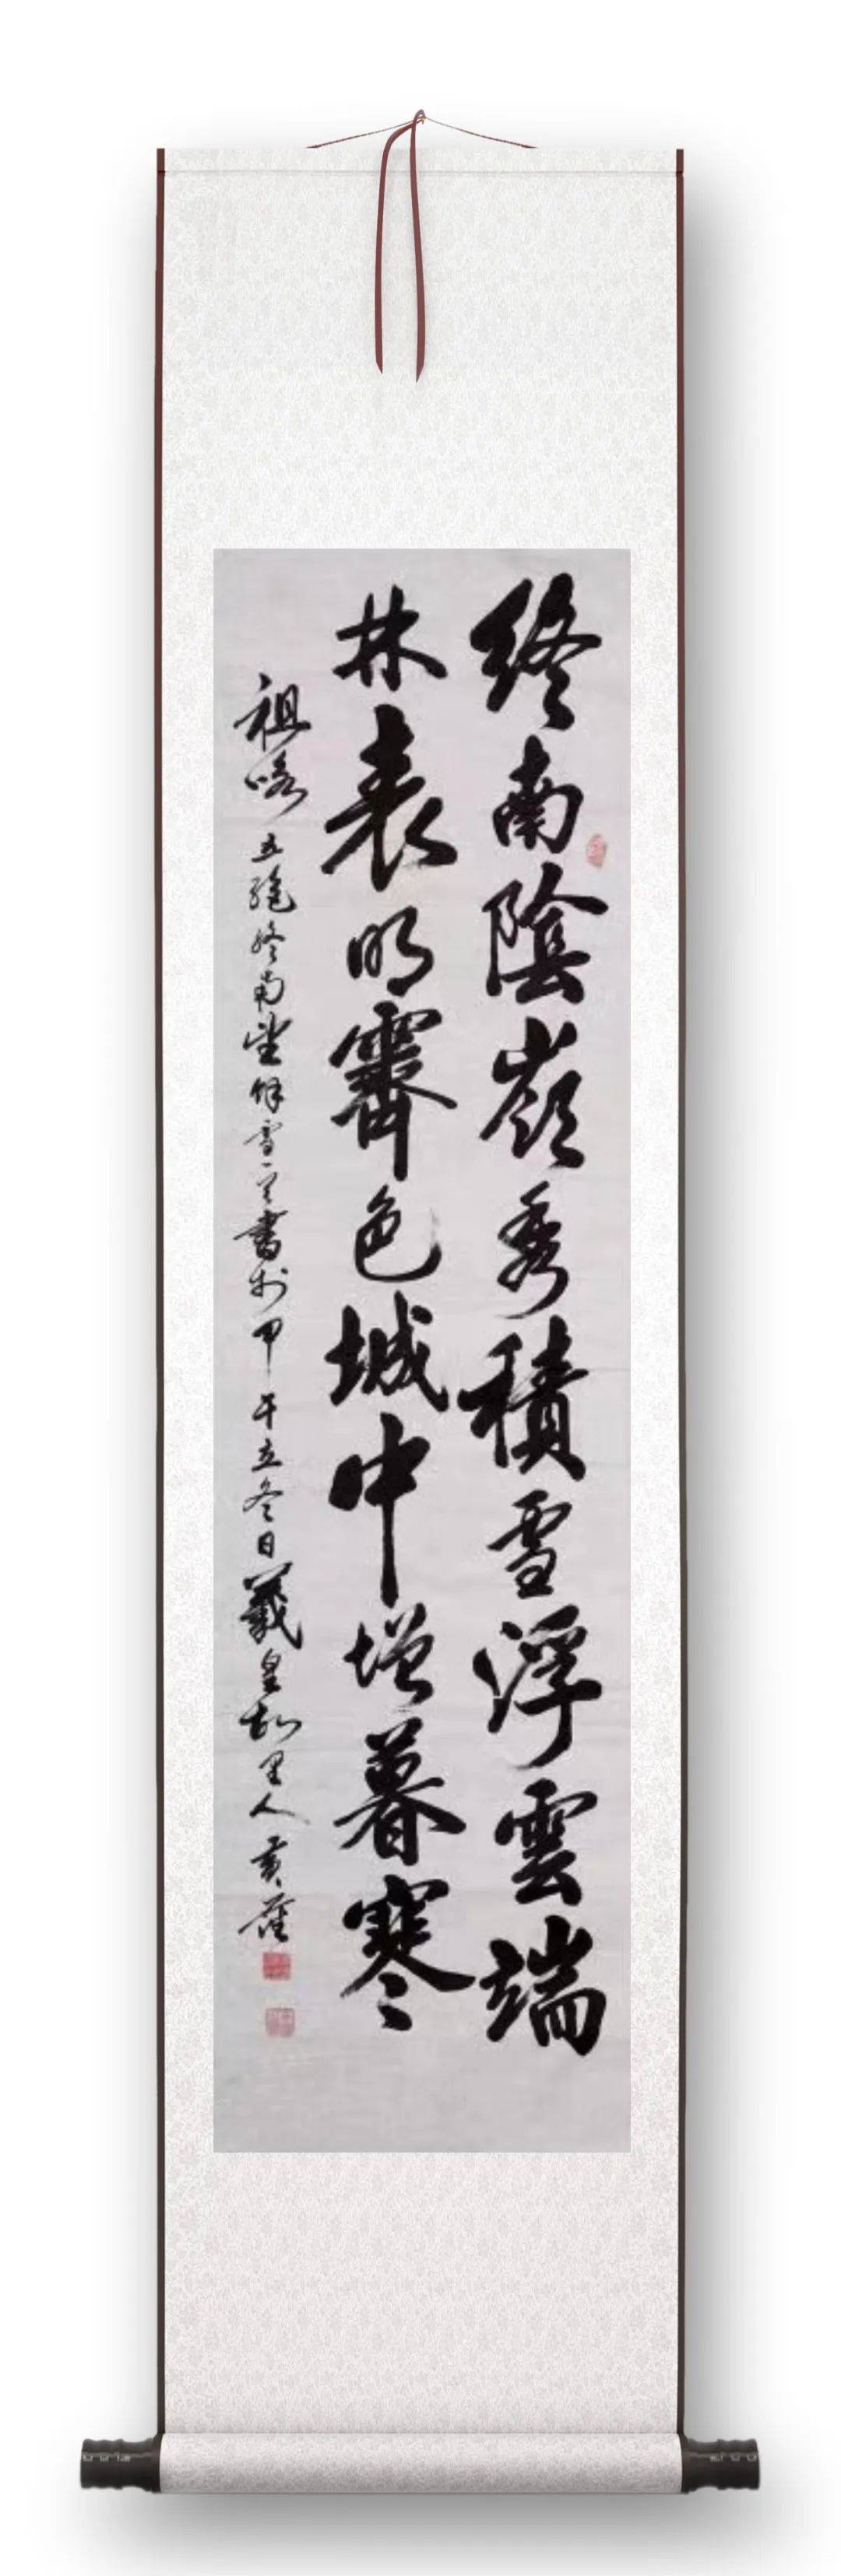 終南陰嶺秀積雪浮雲端
林表明霽色城中增暮寒
祖咏五絕終南望餘雪一首書於甲午立冬日羲皇故里人黃